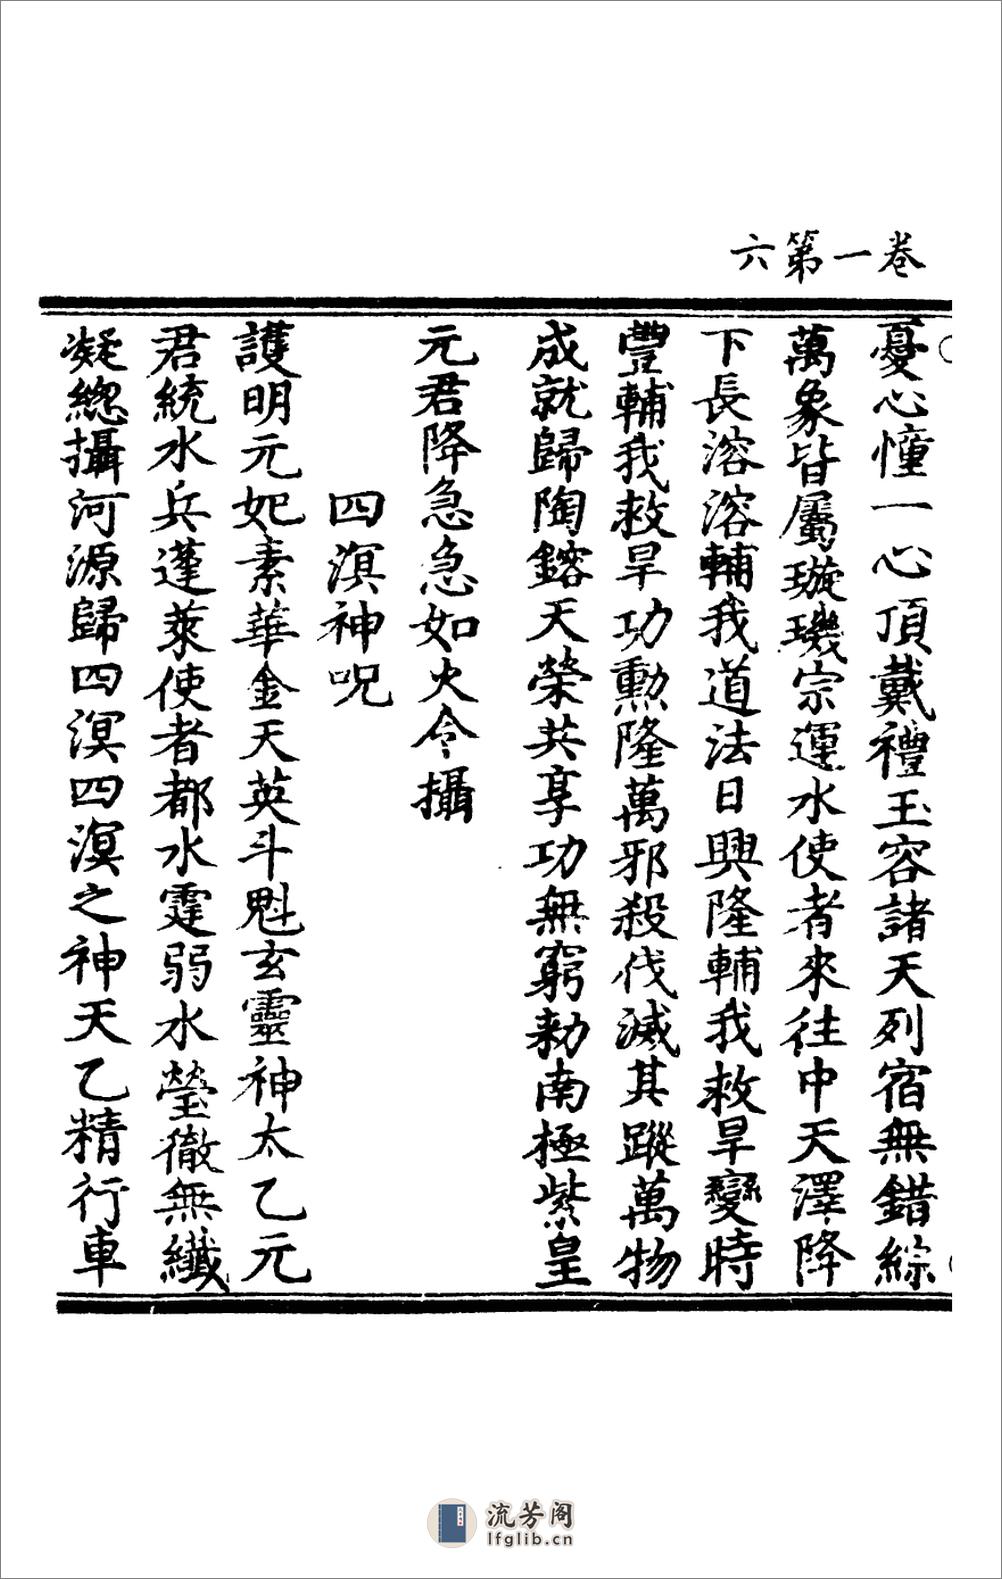 卷一第六
憂心憧一心頂戴禮玉容諸天列宿無錯綜
萬象皆屬璇璣宗運水使者來往中天澤降
下長溶溶輔我道法日興隆輔我救旱變時
豐輔我救旱功勳隆萬邪殺伐滅其蹤萬物
成就歸陶鎔天榮共享功無窮勑南極紫皇
元君降急急如火令攝
四溟神呪
護明元妃素華金天英斗魁玄靈神太乙元
君統水兵蓬萊使者都水霆弱水瑩徹無纖
凝總攝河源歸四溟四溟之神天乙精行車
流芳阁
lfglib.cn